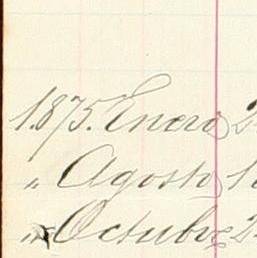 1.875. Enero 2
„ Agosto 1
„ Octubre 2